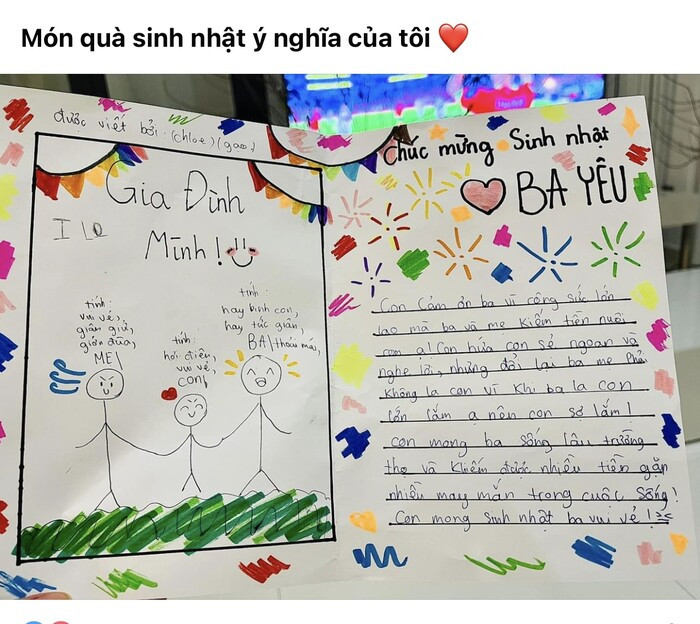 Món quà sinh nhật ý nghĩa của tôi ❤️
được viết bởi: (chloe) (gạo)
Gia Đình
Mình!
I LO
tính:
vui vẻ,
giận giữ,
giỡn đùa,
MẸ
tính:
hơi điệu,
vui vẻ,
CON
tính:
hay Đánh con,
hay tức giận,
BA thoải mái,
Chúc mừng Sinh nhật
BA YÊU
Con cảm ơn ba vì công sức lớn
lao mà ba và mẹ kiếm tiền nuôi
con ạ! Con hứa con sẽ ngoan và
nghe lời, nhưng đổi lại ba mẹ phải
không la con vì khi ba la con
lớn lắm ạ nên con sợ lắm!
con mong ba sống lâu trường
thọ và khiếm được nhiều tiền gặp
nhiều may mắn trong cuộc sống!
Con mong sinh nhật ba vui vẻ!